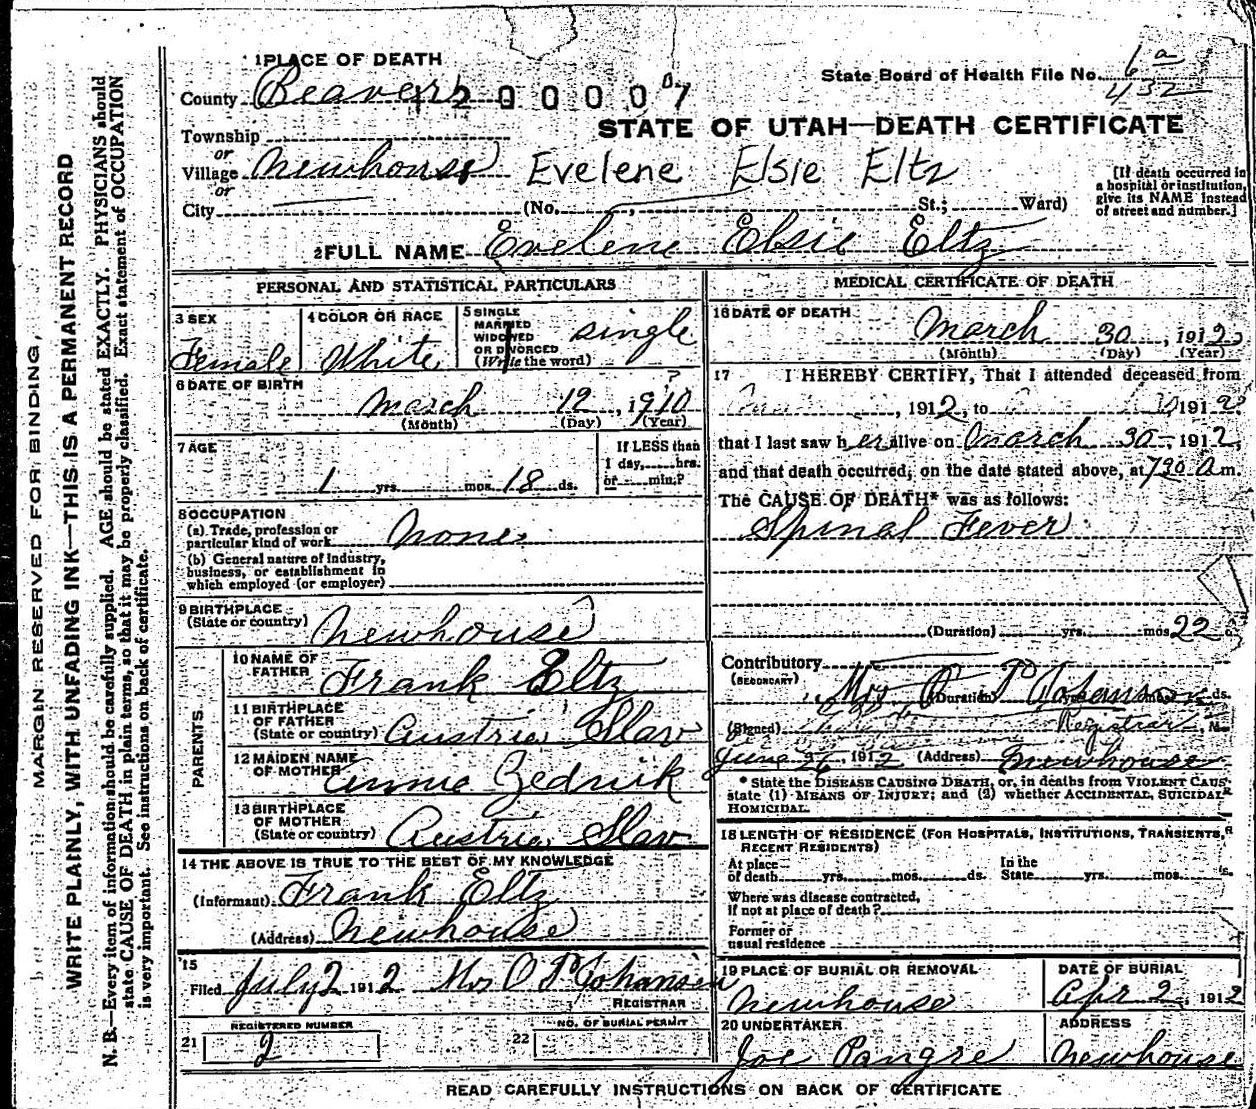 MARGIN RESERVED FOR BINDING,
WRITE PLAINLY, WITH UNFADING INK—THIS IS A PERMANENT RECORD
N. B.—Every item of information should be carefully supplied. AGE should be stated EXACTLY. PHYSICIANS should
state CAUSE OF DEATH in plain terms, so that it may be properly classified. Exact statement of OCCUPATION
is very important. See instructions on back of certificate.
1 PLACE OF DEATH
County Beaver
State Board of Health File No. 6 a
432
STATE OF UTAH—DEATH CERTIFICATE
Township
or
Village Newhouse
or
City (No. , St.; Ward)
Evelene Elsie Eltz
[If death occurred in
a hospital or institution,
give its NAME instead
of street and number.]
2 FULL NAME Evelene Elsie Eltz
PERSONAL AND STATISTICAL PARTICULARS
3 SEX
Female
4 COLOR OR RACE
White
5 SINGLE
MARRIED
WIDOWED
OR DIVORCED
(Write the word)
single
6 DATE OF BIRTH
March 12, 1910 ?
(Month) (Day) (Year)
7 AGE
1 yrs. mos. 18 ds.
If LESS than
1 day, hrs.
or min.?
8 OCCUPATION
(a) Trade, profession or
particular kind of work None
(b) General nature of industry,
business, or establishment in
which employed (or employer)
9 BIRTHPLACE
(State or country) Newhouse
PARENTS
10 NAME OF
FATHER Frank Eltz
11 BIRTHPLACE
OF FATHER
(State or country) Austria Slav
12 MAIDEN NAME
OF MOTHER Annie Zednik
13 BIRTHPLACE
OF MOTHER
(State or country) Austria Slav
14 THE ABOVE IS TRUE TO THE BEST OF MY KNOWLEDGE
(Informant) Frank Eltz
(Address) Newhouse
15
Filed July 2 1912 Mrs O P Johansen
REGISTRAR
21 REGISTERED NUMBER
2
22 NO. OF BURIAL PERMIT
MEDICAL CERTIFICATE OF DEATH
16 DATE OF DEATH
March 30, 1912
(Month) (Day) (Year)
17 I HEREBY CERTIFY, That I attended deceased from
, 1912, to 1912.
that I last saw her alive on March 30, 1912,
and that death occurred, on the date stated above, at 720 A m.
The CAUSE OF DEATH* was as follows:
Spinal Fever
(Duration) yrs. mos. 22
Contributory
(SECONDARY)
Mrs O P Johansen
(Duration) ds.
(Signed) Registrar
June 26, 1912 (Address) Newhouse
* State the DISEASE CAUSING DEATH, or, in deaths from VIOLENT CAUS
state (1) MEANS OF INJURY; and (2) whether ACCIDENTAL, SUICIDAL
HOMICIDAL.
18 LENGTH OF RESIDENCE (FOR HOSPITALS, INSTITUTIONS, TRANSIENTS,
RECENT RESIDENTS)
At place
of death yrs. mos. ds.
In the
State yrs. mos.
Where was disease contracted,
if not at place of death?
Former or
usual residence
19 PLACE OF BURIAL OR REMOVAL
Newhouse
DATE OF BURIAL
Apr 2, 1912
20 UNDERTAKER
Joe Pangre
ADDRESS
Newhouse
READ CAREFULLY INSTRUCTIONS ON BACK OF CERTIFICATE